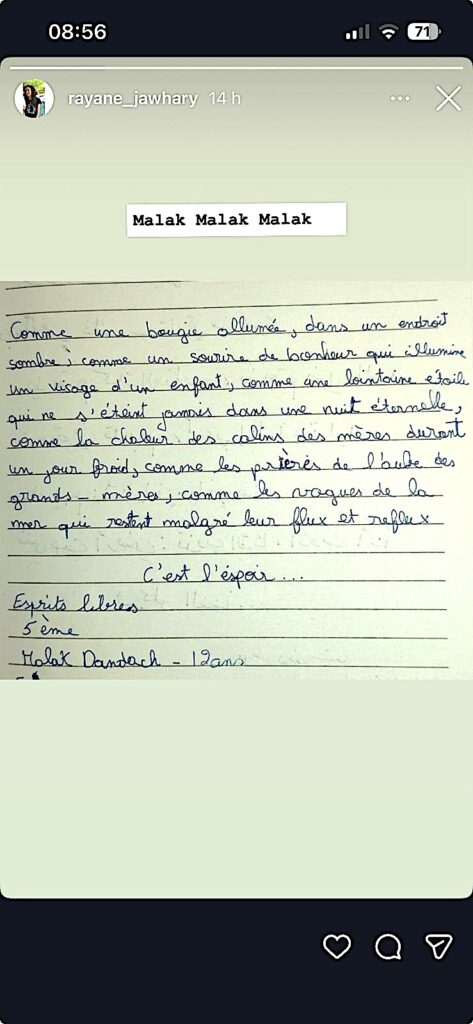 08:56
71
rayane_jawhary 14 h
Malak Malak Malak
Comme une bougie allumée, dans un endroit
sombre, comme un sourire de bonheur qui illumine
un visage d'un enfant, comme une lointaine etoile
qui ne s'éteint jamais dans une nuit éternelle,
comme la chaleur des calins des mères durant
un jour froid, comme les prières de l'aube des
grands-mères, comme les vagues de la
mer qui restent malgré leur flux et reflux
C'est l'éspoir...
Esprits libres
5ème
Malak Dandach - 12ans